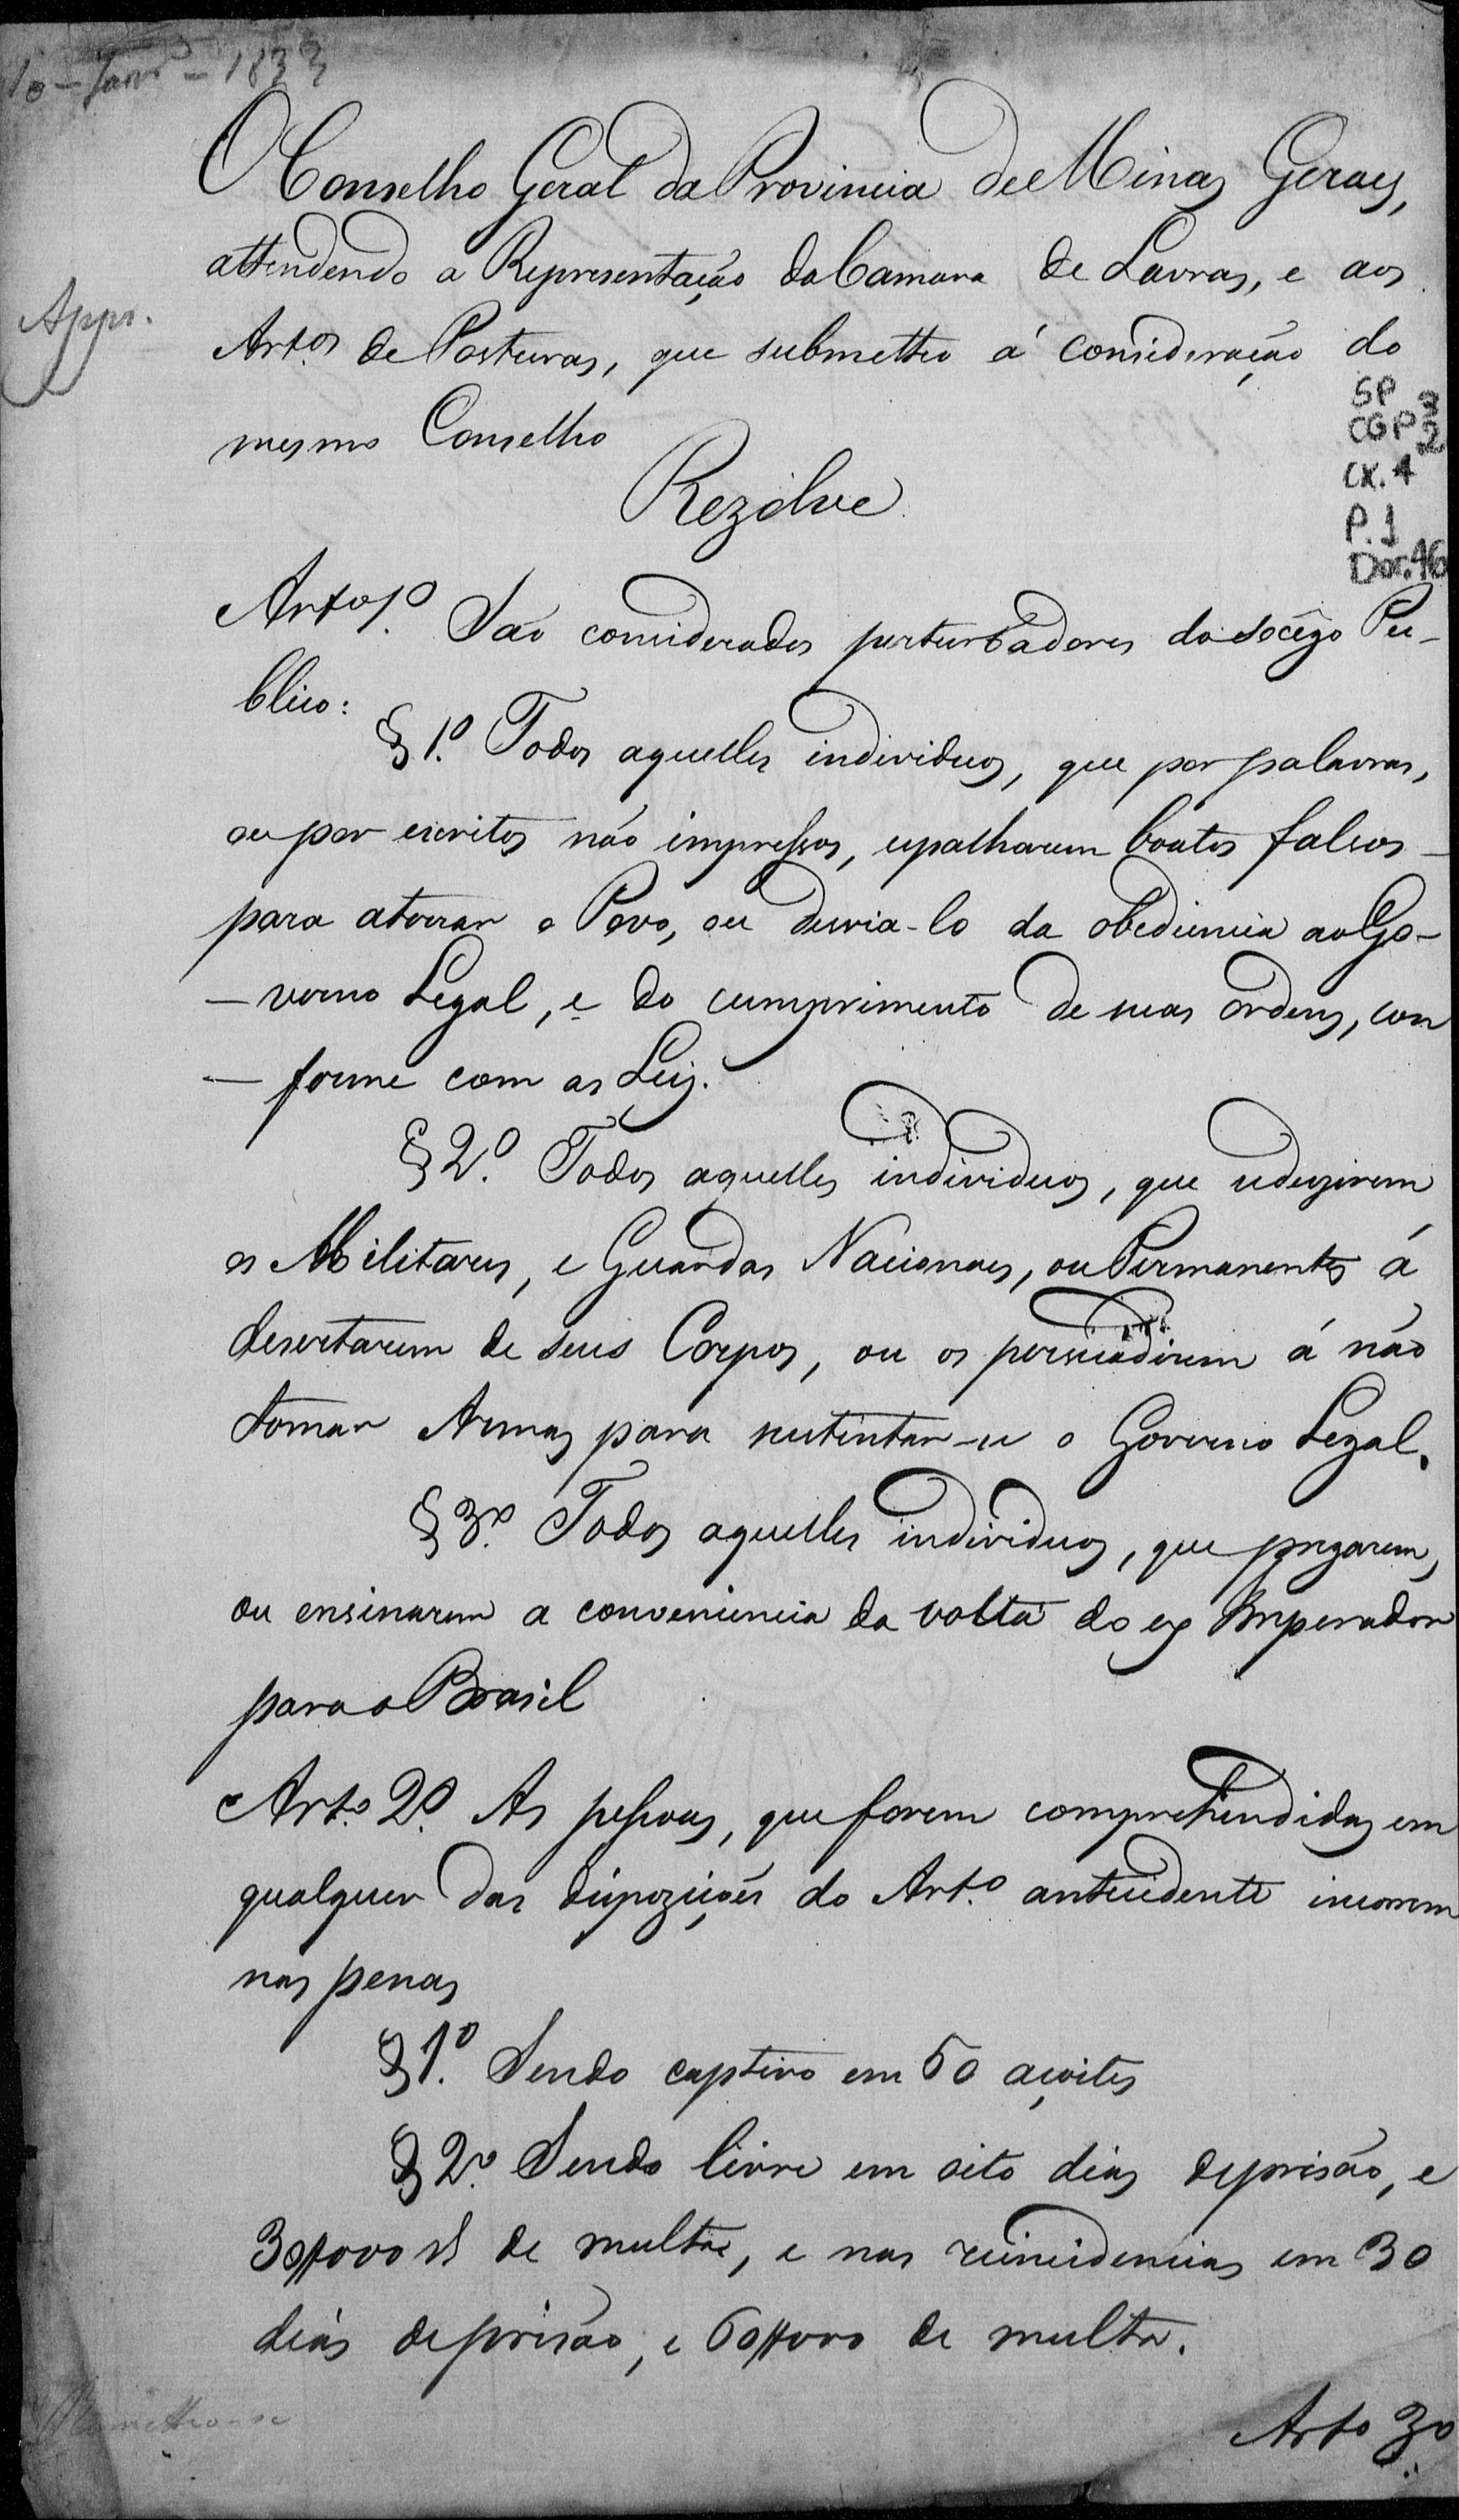 10 - Janrº - 1833
O Conselho Geral da Provincia de Minas Geraes,
attendendo a Representação da Camara de Lavras, e aos
Appr.
Artos de Posturas, que submetteo á consideração do
mesmo Conselho
SP
CGP 3
2
CX. 4
P. 1
Doc. 46
Rezolve
Arto 1º. São considerados perturbadores do socêgo Pu-
blico:
§ 1º. Todos aquelles individuos, que por palavras,
ou por escritos não impressos, espalharem boatos falsos
para aterrar o Povo, ou desvia-lo da obediencia ao Go-
-verno Legal, e do cumprimento de suas ordens, con
-forme com as Leis.
§ 2º. Todos aquelles individuos, que seduzirem
os Militares, e Guardas Nacionaes, ou Permanentes á
desertarem de seus Corpos, ou os persuadirem á não
tomar Armas para sustentar-se o Governo Legal.
§ 3º. Todos aquelles individuos, que prégarem,
ou ensinarem a conveniencia da volta do ex Imperador
para o Brasil
Arto. 2º. As pessoas, que forem comprehendidas em
qualquer das dispozições do Arto. antecedente incorrem
nas penas
§ 1º. Sendo captivo em 50 açoites
§ 2º. Sendo livre em oito dias de prisão, e
30//000 rs de multa, e nas reincidencias em 30
dias de prisão, e 60//000 de multa.
Remetteo-se
Arto 3º